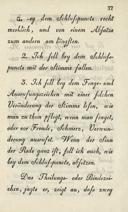 37
1. ey dem Schlußpuncte recht
merklich, und von einem Absatze
zum andern am längsten.
2. Ich soll bey dem Schluß-
puncte mit der Stimme fallen.
3. Ich soll bey dem Frage- und
Ausrufungszeichen mit einer solchen
Veränderung der Stimme lesen, wie
man zu thun pflegt, wenn man fraget,
oder vor Freude, Schmerz, Verwun-
derung ausrufet. Wenn der Sinn
der Rede ganz ist, soll ich mich, wie
bey dem Schlußpuncte, absetzen.
Das Theilungs- oder Bindezei-
chen, zeigt an, daß zwey